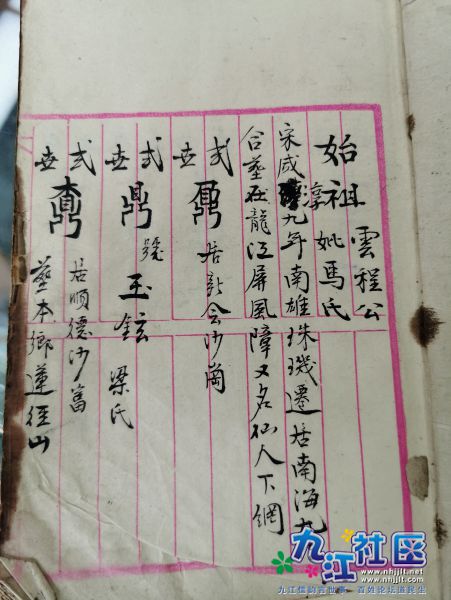 始祖
雲程公
妣馬氏
宋咸淳九年南雄珠璣遷居南海九
合塟在龍江屏風障又名仙人下網
弍世 鼐 居新会沙崗
弍世 鼎 號玉鉉 梁氏
弍世 居順德沙富
塟本鄉蓮徑山
九江社区
www.nhjjlt.com
www.nhjjlt.net
九江儒韵言世事 百姓论坛道民生